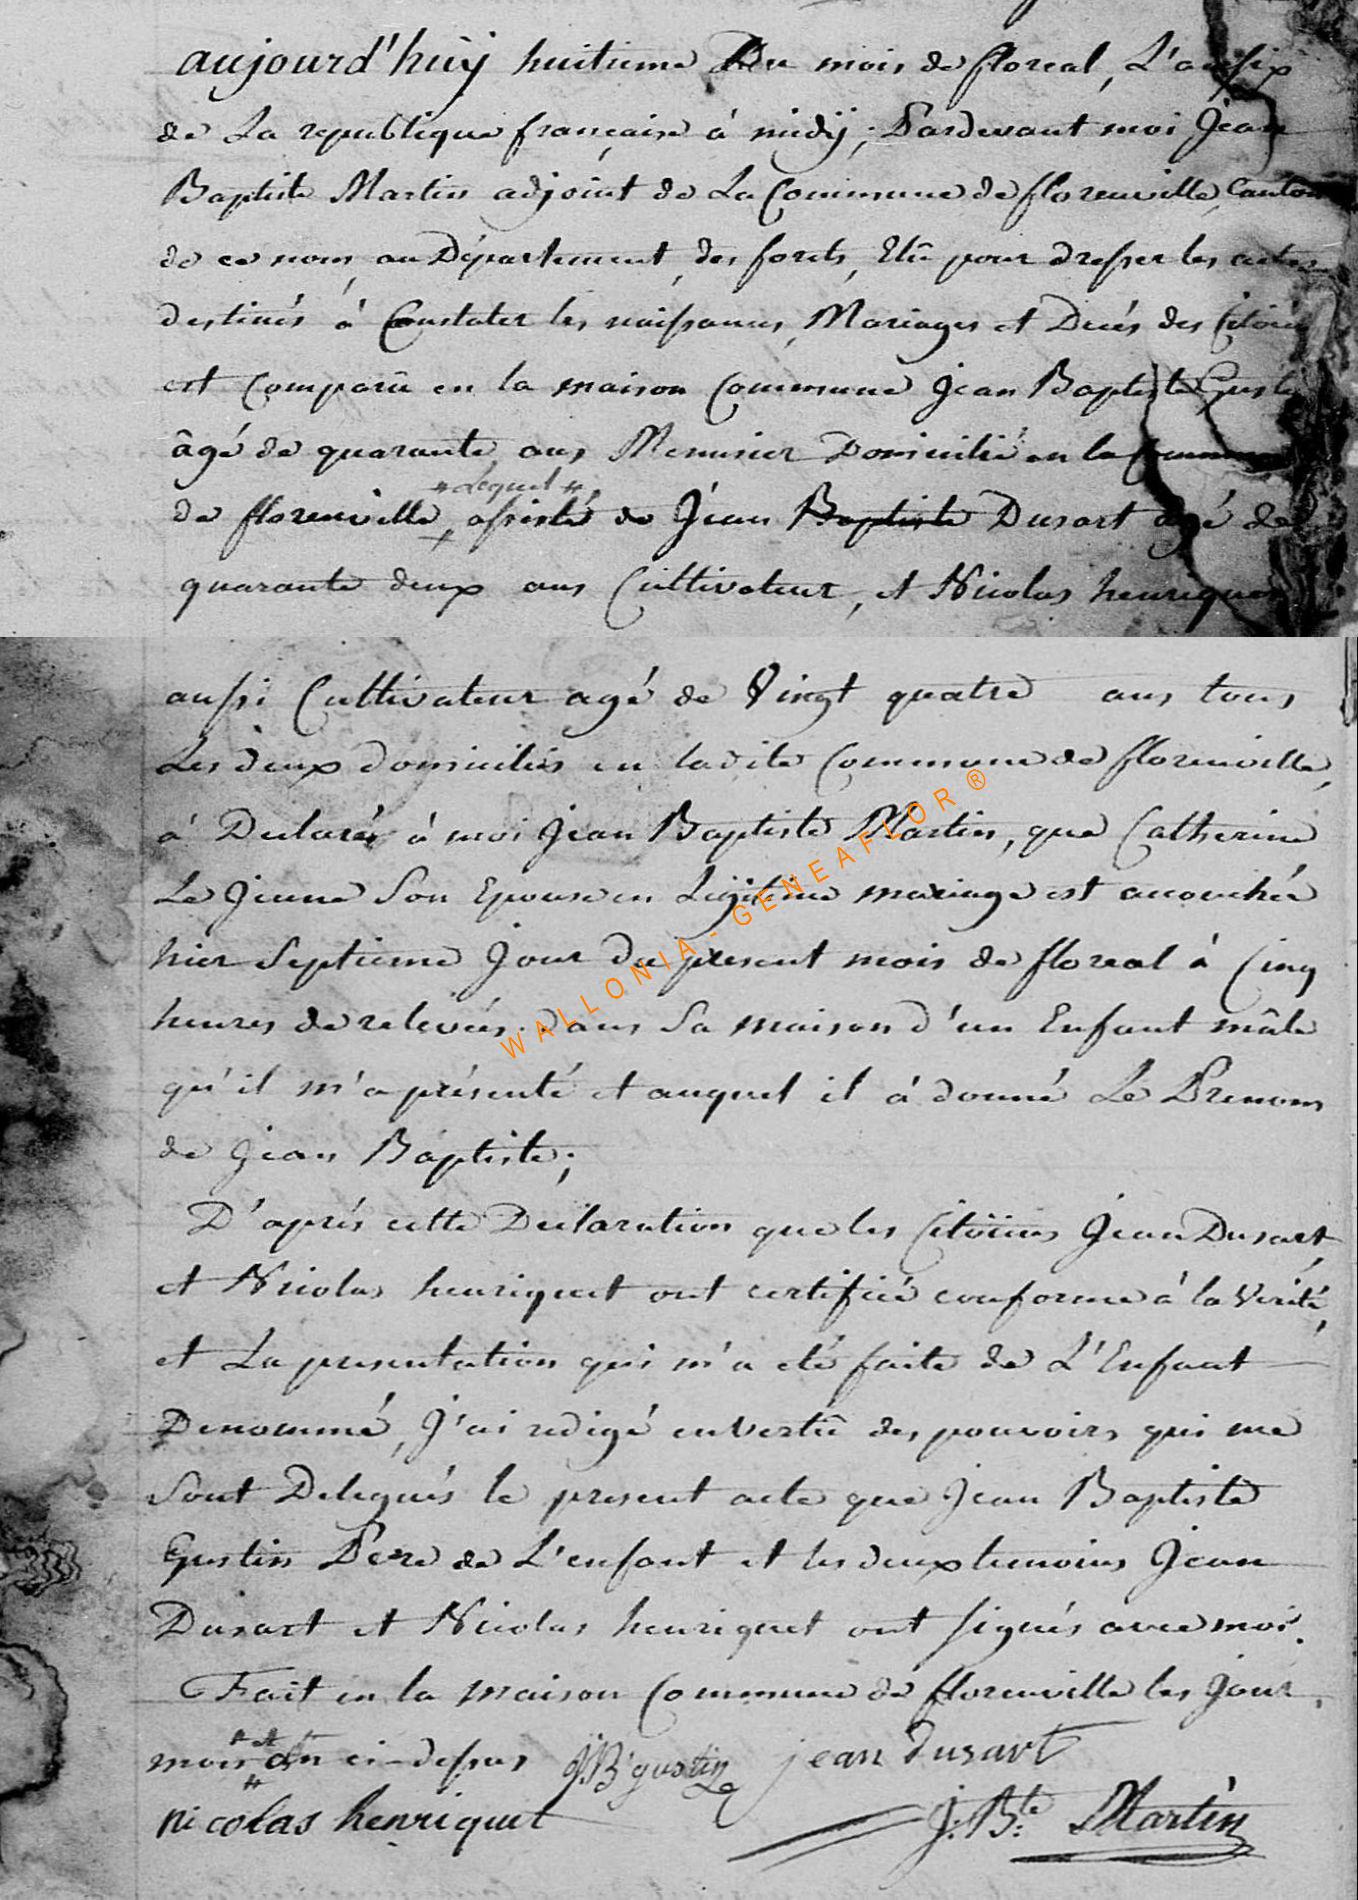 aujourd'huÿ huitieme Du mois de floreal, L'an six
de La republique française à midÿ; Pardevant moi Jean
Baptiste Martin adjoint de La Commune de florenville, Canton
de ce nom, au Département, des forets, Elû pour dresser les actes
destinés à Constater les naissances, Mariages et Decés des Citöie
est Comparû en la maison Commune Jean Baptiste Gustin
âgé de quarante ans Menusier Domicilié en la Commune
*Lequel*
de florenville, assisté de Jean Baptiste Dusart agé de
quarante deux ans Cultivateur, et Nicolas henriquet
aussi Cultivateur agé de Vingt quatre ans tous
Les deux domiciliés en ladite Commune de florenville,
à Declaré à moi Jean Baptiste Martin, que Catherine
Le Jeune Son Epouse en Legitime mariage est accouchée
hier Septieme Jour du present mois de floreal à Cinq
heures de relevées Dans Sa maison d'un Enfant mâle
qu'il m'a présenté et auquel il à donné Le Prenom
de Jean Baptiste;
D'aprés cette Declaration que les Citöiens Jean Dusart,
et Nicolas henriquet ont certifié conforme à la Verité,
et La presentation qui m'a eté faite de L'Enfant
Denommé, J'ai redigé en Vertû des pouvoirs qui me
Sont Delegués le present acte que Jean Baptiste
Gustin Pere de L'enfant et les deux temoins Jean
Dusart et Nicolas henriquet ont signés avec moi.
Fait en la maison Commune de florenville les Jour,
mois et an ci-dessus J.B. gustin jean dusart
nicolas henriquet J: B:te Martin
WALLONIA - GENEAFLOR ®